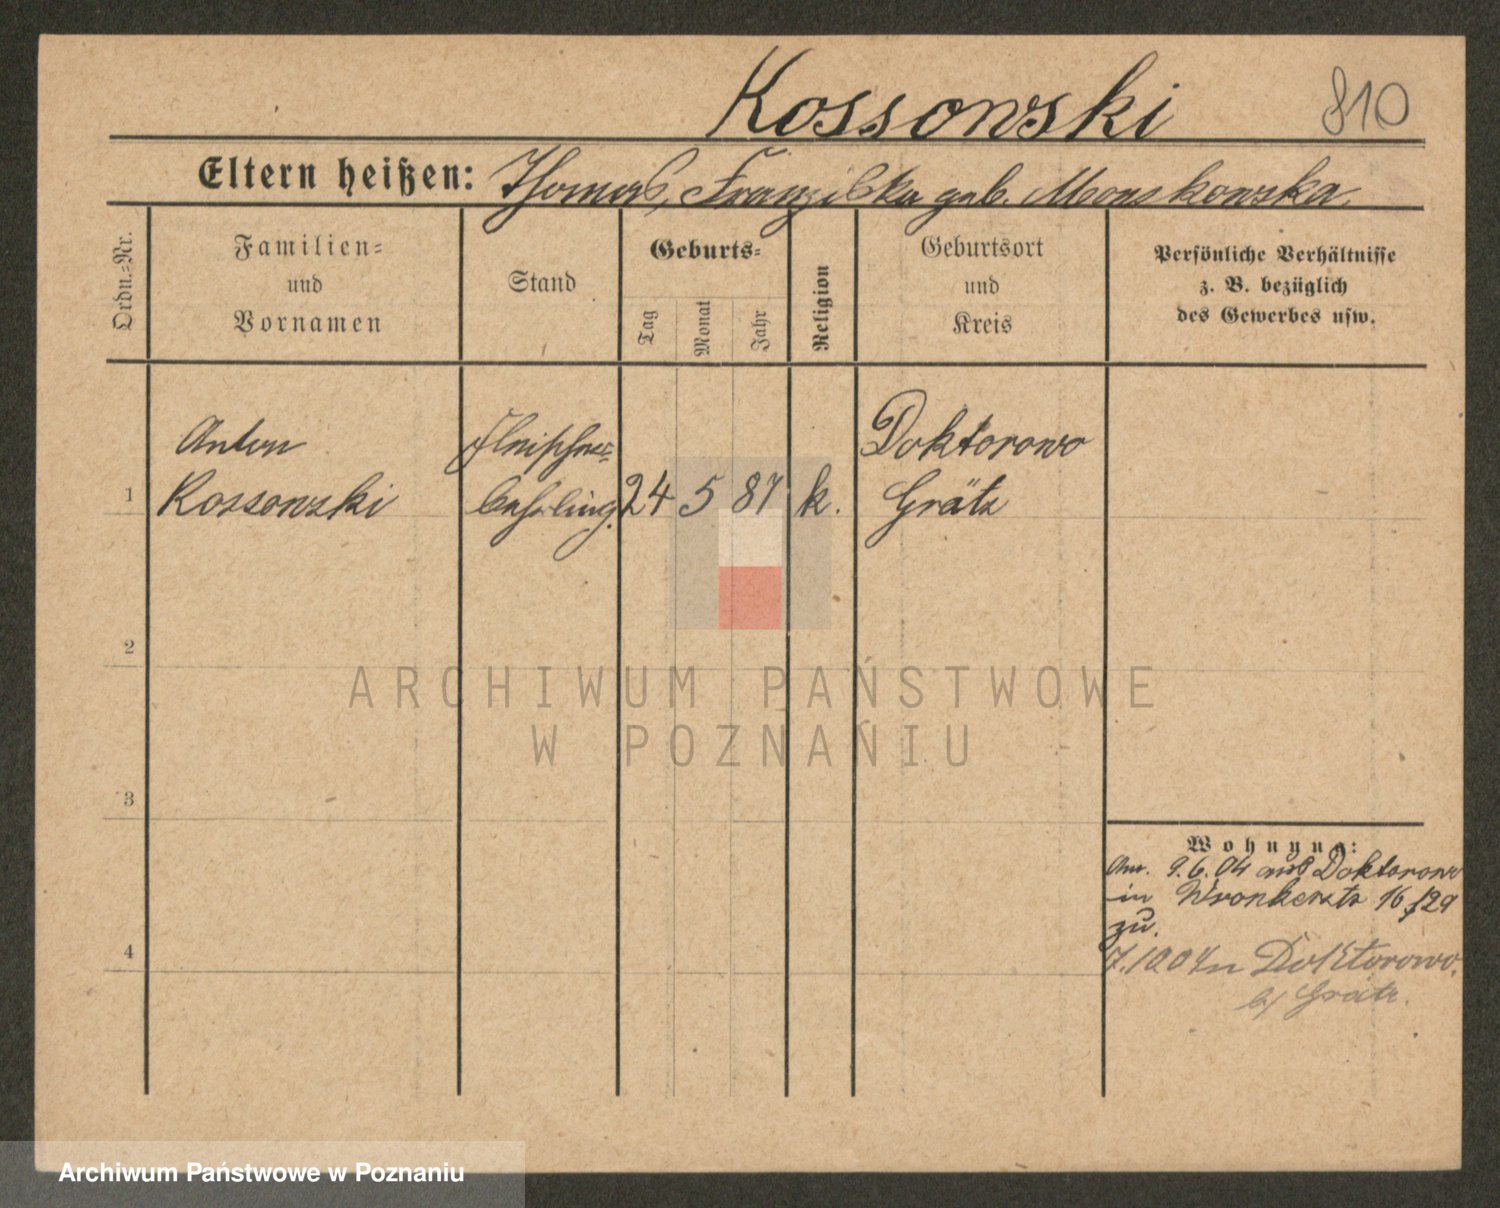 Kossowski 810
Eltern heißen: Thomas, Franziska geb. Monskowska
Ordn.-Nr.
Familien-
und
Vornamen
Stand
Geburts-
Tag
Monat
Jahr
Religion
Geburtsort
und
Kreis
Persönliche Verhältnisse
z. B. bezüglich
des Gewerbes usw.
Anton Fleischer- Doktorowo
1 Kossowski lehrling. 24 5 87 k. Grätz
2
ARCHIWUM PAŃSTWOWE
W POZNANIU
3
Wohnung:
9.6.04 aus Doktorowo
in Wronkerstr 16/29
4
zu.
7.10.04 n Doktorowo.
b/ Grätz.
Archiwum Państwowe w Poznaniu